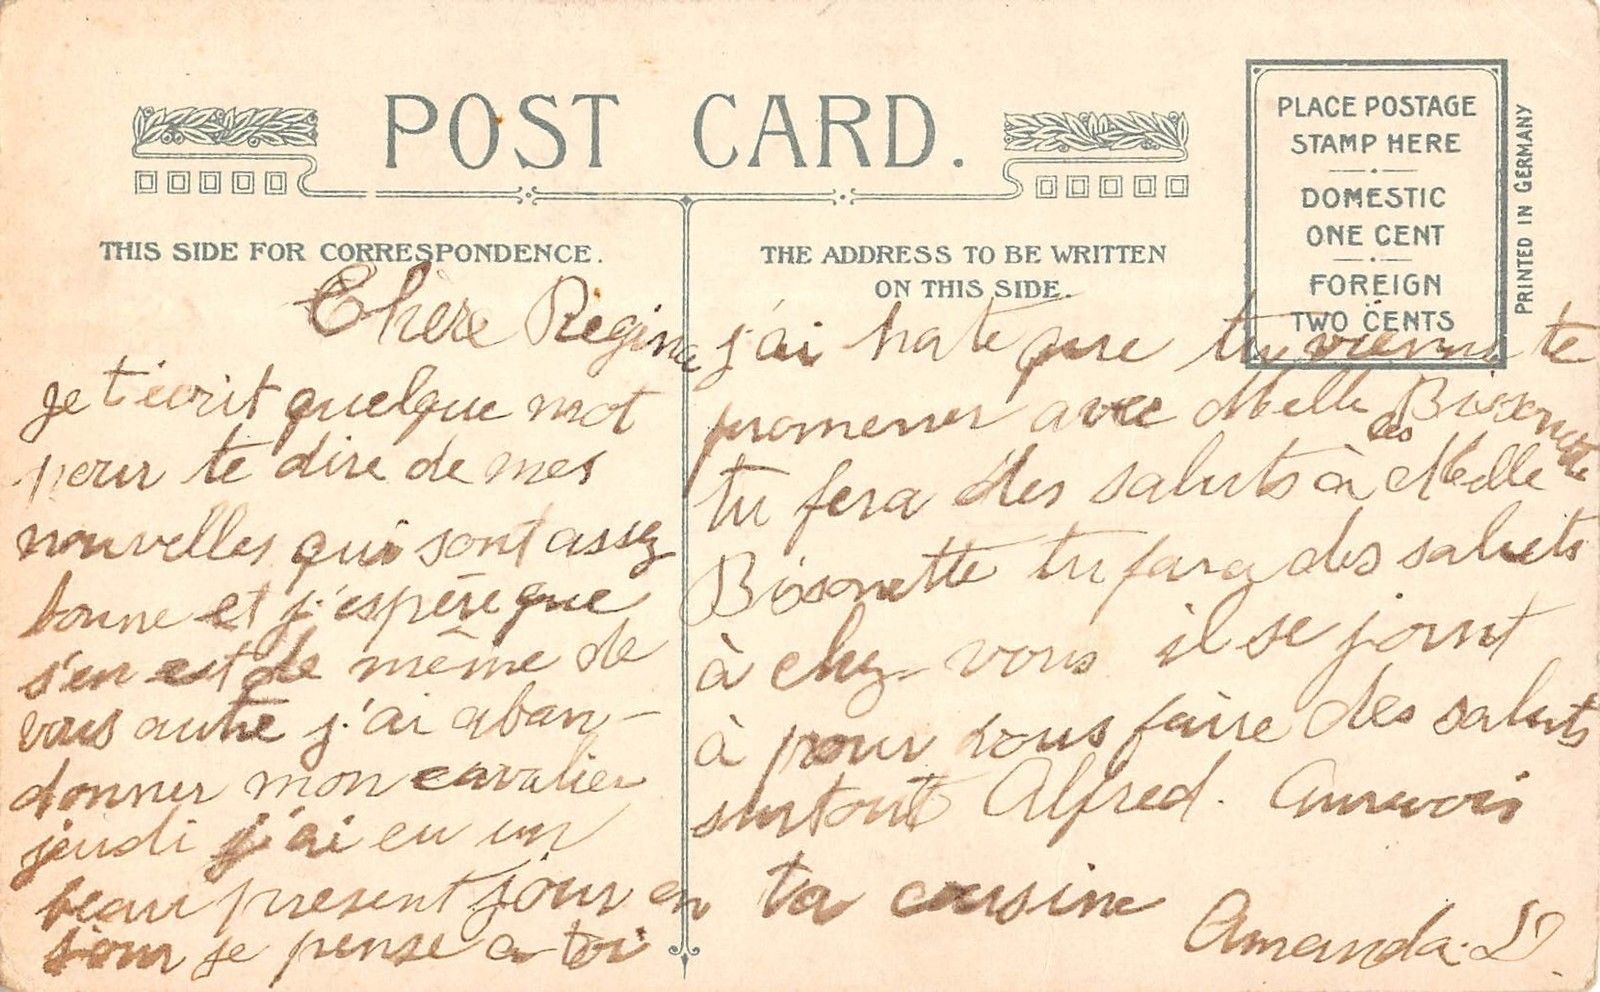 POST CARD.
THIS SIDE FOR CORRESPONDENCE.
THE ADDRESS TO BE WRITTEN
ON THIS SIDE.
PLACE POSTAGE
STAMP HERE
DOMESTIC
ONE CENT
FOREIGN
TWO CENTS
PRINTED IN GERMANY
Chère Regina
je t'écrit quelque mot
pour te dire de mes
nouvelles qui sont assez
bonne et j'espère que
s'en est de même de
vous autre j'ai aban-
donner mon cavalier
jeudi j'ai eu un
beau present jour en
jour je pense a toi
j'ai hate que tu vienne te
promener avec Melle Bissonette
tu fera des saluts à Melle
Bissonette tu fara des saluts
à chez vous il se joint
à pour vous faire des saluts
surtout Alfred. Aurevoir
ta cousine
Amanda. D.